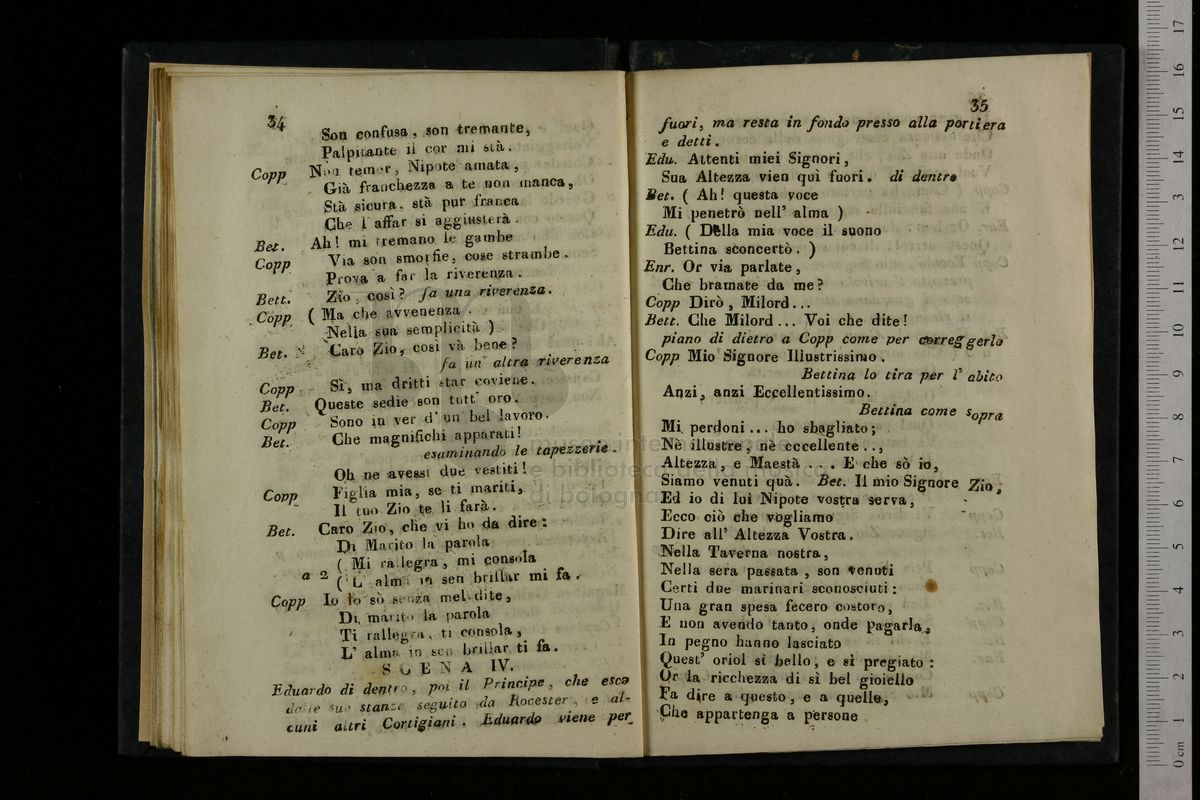 34
Son confusa, son tremante,
Palpitante il cor mi stà.
Copp Non temer, Nipote amata,
Già franchezza a te non manca,
Stà sicura, stà pur franca
Che l'affar si aggiusterà.
Bet. Ah! mi tremano le gambe
Copp Via son smorfie, cose strambe.
Prova a far la riverenza.
Bett. Zio, così? fa una riverenza.
Copp ( Ma che avvenenza.
Nella sua semplicità )
Bet. Caro Zio, così và bene?
fa un' altra riverenza
Copp Sì, ma dritti star coviene.
Bet. Queste sedie son tutt' oro.
Copp Sono in ver d' un bel lavoro.
Bet. Che magnifichi apparati!
esaminando le tapezzerie.
Oh ne avessi due vestiti!
Copp Figlia mia, se ti mariti,
Il tuo Zio te li farà.
Bet. Caro Zio, che vi ho da dire:
Di Marito la parola
( Mi rallegra, mi consola
a 2 ( L' alma in sen brillar mi fa.
Copp Io lo sò senza mel dite,
Di marito la parola
Ti rallegra, ti consola,
L' alma in sen brillar ti fa.
SCENA IV.
Eduardo di dentro, poi il Principe, che esce
dalle sue stanze seguito da Rocester, e al-
cuni altri Cortigiani. Eduardo viene per
35
fuori, ma resta in fondo presso alla portiera
e detti.
Edu. Attenti miei Signori,
Sua Altezza vien quì fuori. di dentro
Bet. ( Ah! questa voce
Mi penetrò nell' alma )
Edu. ( Della mia voce il suono
Bettina sconcertò. )
Enr. Or via parlate,
Che bramate da me?
Copp Dirò, Milord...
Bett. Che Milord... Voi che dite!
piano di dietro a Copp come per correggerlo
Copp Mio Signore Illustrissimo.
Bettina lo tira per l' abito
Anzi, anzi Eccellentissimo.
Bettina come sopra
Mi perdoni... ho sbagliato;
Nè illustre, nè eccellente..,
Altezza, e Maestà... E che sò io,
Siamo venuti quà. Bet. Il mio Signore Zio,
Ed io di lui Nipote vostra serva,
Ecco ciò che vogliamo
Dire all' Altezza Vostra.
Nella Taverna nostra,
Nella sera passata, son venuti
Certi due marinari sconosciuti:
Una gran spesa fecero costoro,
E non avendo tanto, onde pagarla,
In pegno hanno lasciato
Quest' oriol sì bello, e sì pregiato:
Or la ricchezza di sì bel gioiello
Fa dire a questo, e a quello,
Che appartenga a persone
museo internazionale
e biblioteca della musica
di bologna
0 cm 1 2 3 4 5 6 7 8 9 10 11 12 13 14 15 16 17